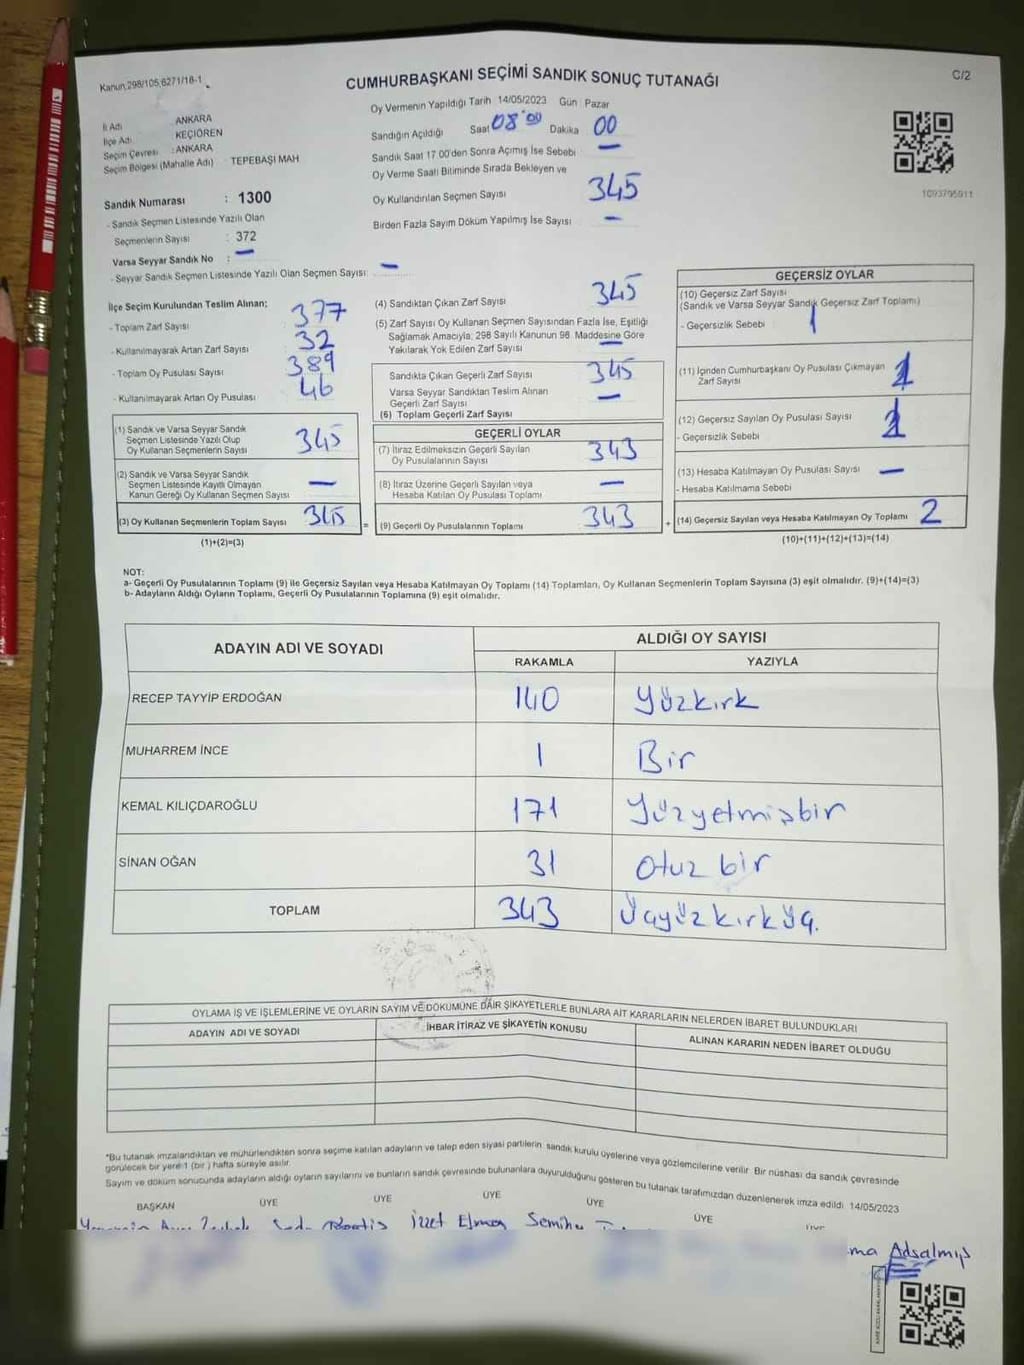 Kanun,298/105,6271/18-1
CUMHURBAŞKANI SEÇİMİ SANDIK SONUÇ TUTANAĞI
C/2
İl Adı : ANKARA
İlçe Adı : KEÇİÖREN
Seçim Çevresi : ANKARA
Seçim Bölgesi (Mahalle Adı) : TEPEBAŞI MAH
Sandık Numarası : 1300
- Sandık Seçmen Listesinde Yazılı Olan
Seçmenlerin Sayısı : 372
Varsa Seyyar Sandık No : —
- Seyyar Sandık Seçmen Listesinde Yazılı Olan Seçmen Sayısı: —
Oy Vermenin Yapıldığı Tarih 14/05/2023 Gün Pazar
Sandığın Açıldığı Saat 08:00 Dakika 00
Sandık Saat 17.00'den Sonra Açımış İse Sebebi —
Oy Verme Saati Bitiminde Sırada Bekleyen ve
Oy Kullandırılan Seçmen Sayısı 345
Birden Fazla Sayım Döküm Yapılmış İse Sayısı —
1093795911
İlçe Seçim Kurulundan Teslim Alınan;
- Toplam Zarf Sayısı 377
- Kullanılmayarak Artan Zarf Sayısı 32
- Toplam Oy Pusulası Sayısı 389
- Kullanılmayarak Artan Oy Pusulası 46
(1) Sandık ve Varsa Seyyar Sandık
Seçmen Listesinde Yazılı Olup
Oy Kullanan Seçmenlerin Sayısı 345
(2) Sandık ve Varsa Seyyar Sandık
Seçmen Listesinde Kayıtlı Olmayan
Kanun Gereği Oy Kullanan Seçmen Sayısı —
(3) Oy Kullanan Seçmenlerin Toplam Sayısı 345 =
(1)+(2)=(3)
(4) Sandıktan Çıkan Zarf Sayısı 345
(5) Zarf Sayısı Oy Kullanan Seçmen Sayısından Fazla İse, Eşitliği
Sağlamak Amacıyla; 298 Sayılı Kanunun 98. Maddesine Göre
Yakılarak Yok Edilen Zarf Sayısı —
Sandıkta Çıkan Geçerli Zarf Sayısı 345
Varsa Seyyar Sandıktan Teslim Alınan
Geçerli Zarf Sayısı —
(6) Toplam Geçerli Zarf Sayısı
GEÇERLİ OYLAR
(7) İtiraz Edilmeksizin Geçerli Sayılan
Oy Pusulalarının Sayısı 343
(8) İtiraz Üzerine Geçerli Sayılan veya
Hesaba Katılan Oy Pusulası Toplamı —
(9) Geçerli Oy Pusulalarının Toplamı 343 +
GEÇERSİZ OYLAR
(10) Geçersiz Zarf Sayısı
(Sandık ve Varsa Seyyar Sandık Geçersiz Zarf Toplamı)
- Geçersizlik Sebebi
(11) İçinden Cumhurbaşkanı Oy Pusulası Çıkmayan
Zarf Sayısı 1
(12) Geçersiz Sayılan Oy Pusulası Sayısı 1
- Geçersizlik Sebebi
(13) Hesaba Katılmayan Oy Pusulası Sayısı —
- Hesaba Katılmama Sebebi
(14) Geçersiz Sayılan veya Hesaba Katılmayan Oy Toplamı 2
(10)+(11)+(12)+(13)=(14)
NOT:
a- Geçerli Oy Pusulalarının Toplamı (9) ile Geçersiz Sayılan veya Hesaba Katılmayan Oy Toplamı (14) Toplamları, Oy Kullanan Seçmenlerin Toplam Sayısına (3) eşit olmalıdır. (9)+(14)=(3)
b- Adayların Aldığı Oyların Toplamı, Geçerli Oy Pusulalarının Toplamına (9) eşit olmalıdır.
ADAYIN ADI VE SOYADI ALDIĞI OY SAYISI
RAKAMLA YAZIYLA
RECEP TAYYİP ERDOĞAN 140 Yüzkırk
MUHARREM İNCE 1 Bir
KEMAL KILIÇDAROĞLU 171 Yüzyetmişbir
SİNAN OĞAN 31 Otuz bir
TOPLAM 343 Üçyüzkırküç.
OYLAMA İŞ VE İŞLEMLERİNE VE OYLARIN SAYIM VE DÖKÜMÜNE DAİR ŞİKAYETLERLE BUNLARA AİT KARARLARIN NELERDEN İBARET BULUNDUKLARI
ADAYIN ADI VE SOYADI İHBAR İTİRAZ VE ŞİKAYETİN KONUSU ALINAN KARARIN NEDEN İBARET OLDUĞU
*Bu tutanak imzalandıktan ve mühürlendikten sonra seçime katılan adayların ve talep eden siyasi partilerin sandık kurulu üyelerine veya gözlemcilerine verilir. Bir nüshası da sandık çevresinde
görülecek bir yere 1 (bir ) hafta süreyle asılır.
Sayım ve döküm sonucunda adayların aldığı oyların sayılarını ve bunların sandık çevresinde bulunanlara duyurulduğunu gösteren bu tutanak tarafımızdan düzenlenerek imza edildi. 14/05/2023
BAŞKAN ÜYE ÜYE ÜYE ÜYE ÜYE ÜYE
İzzet Elmas Semiha